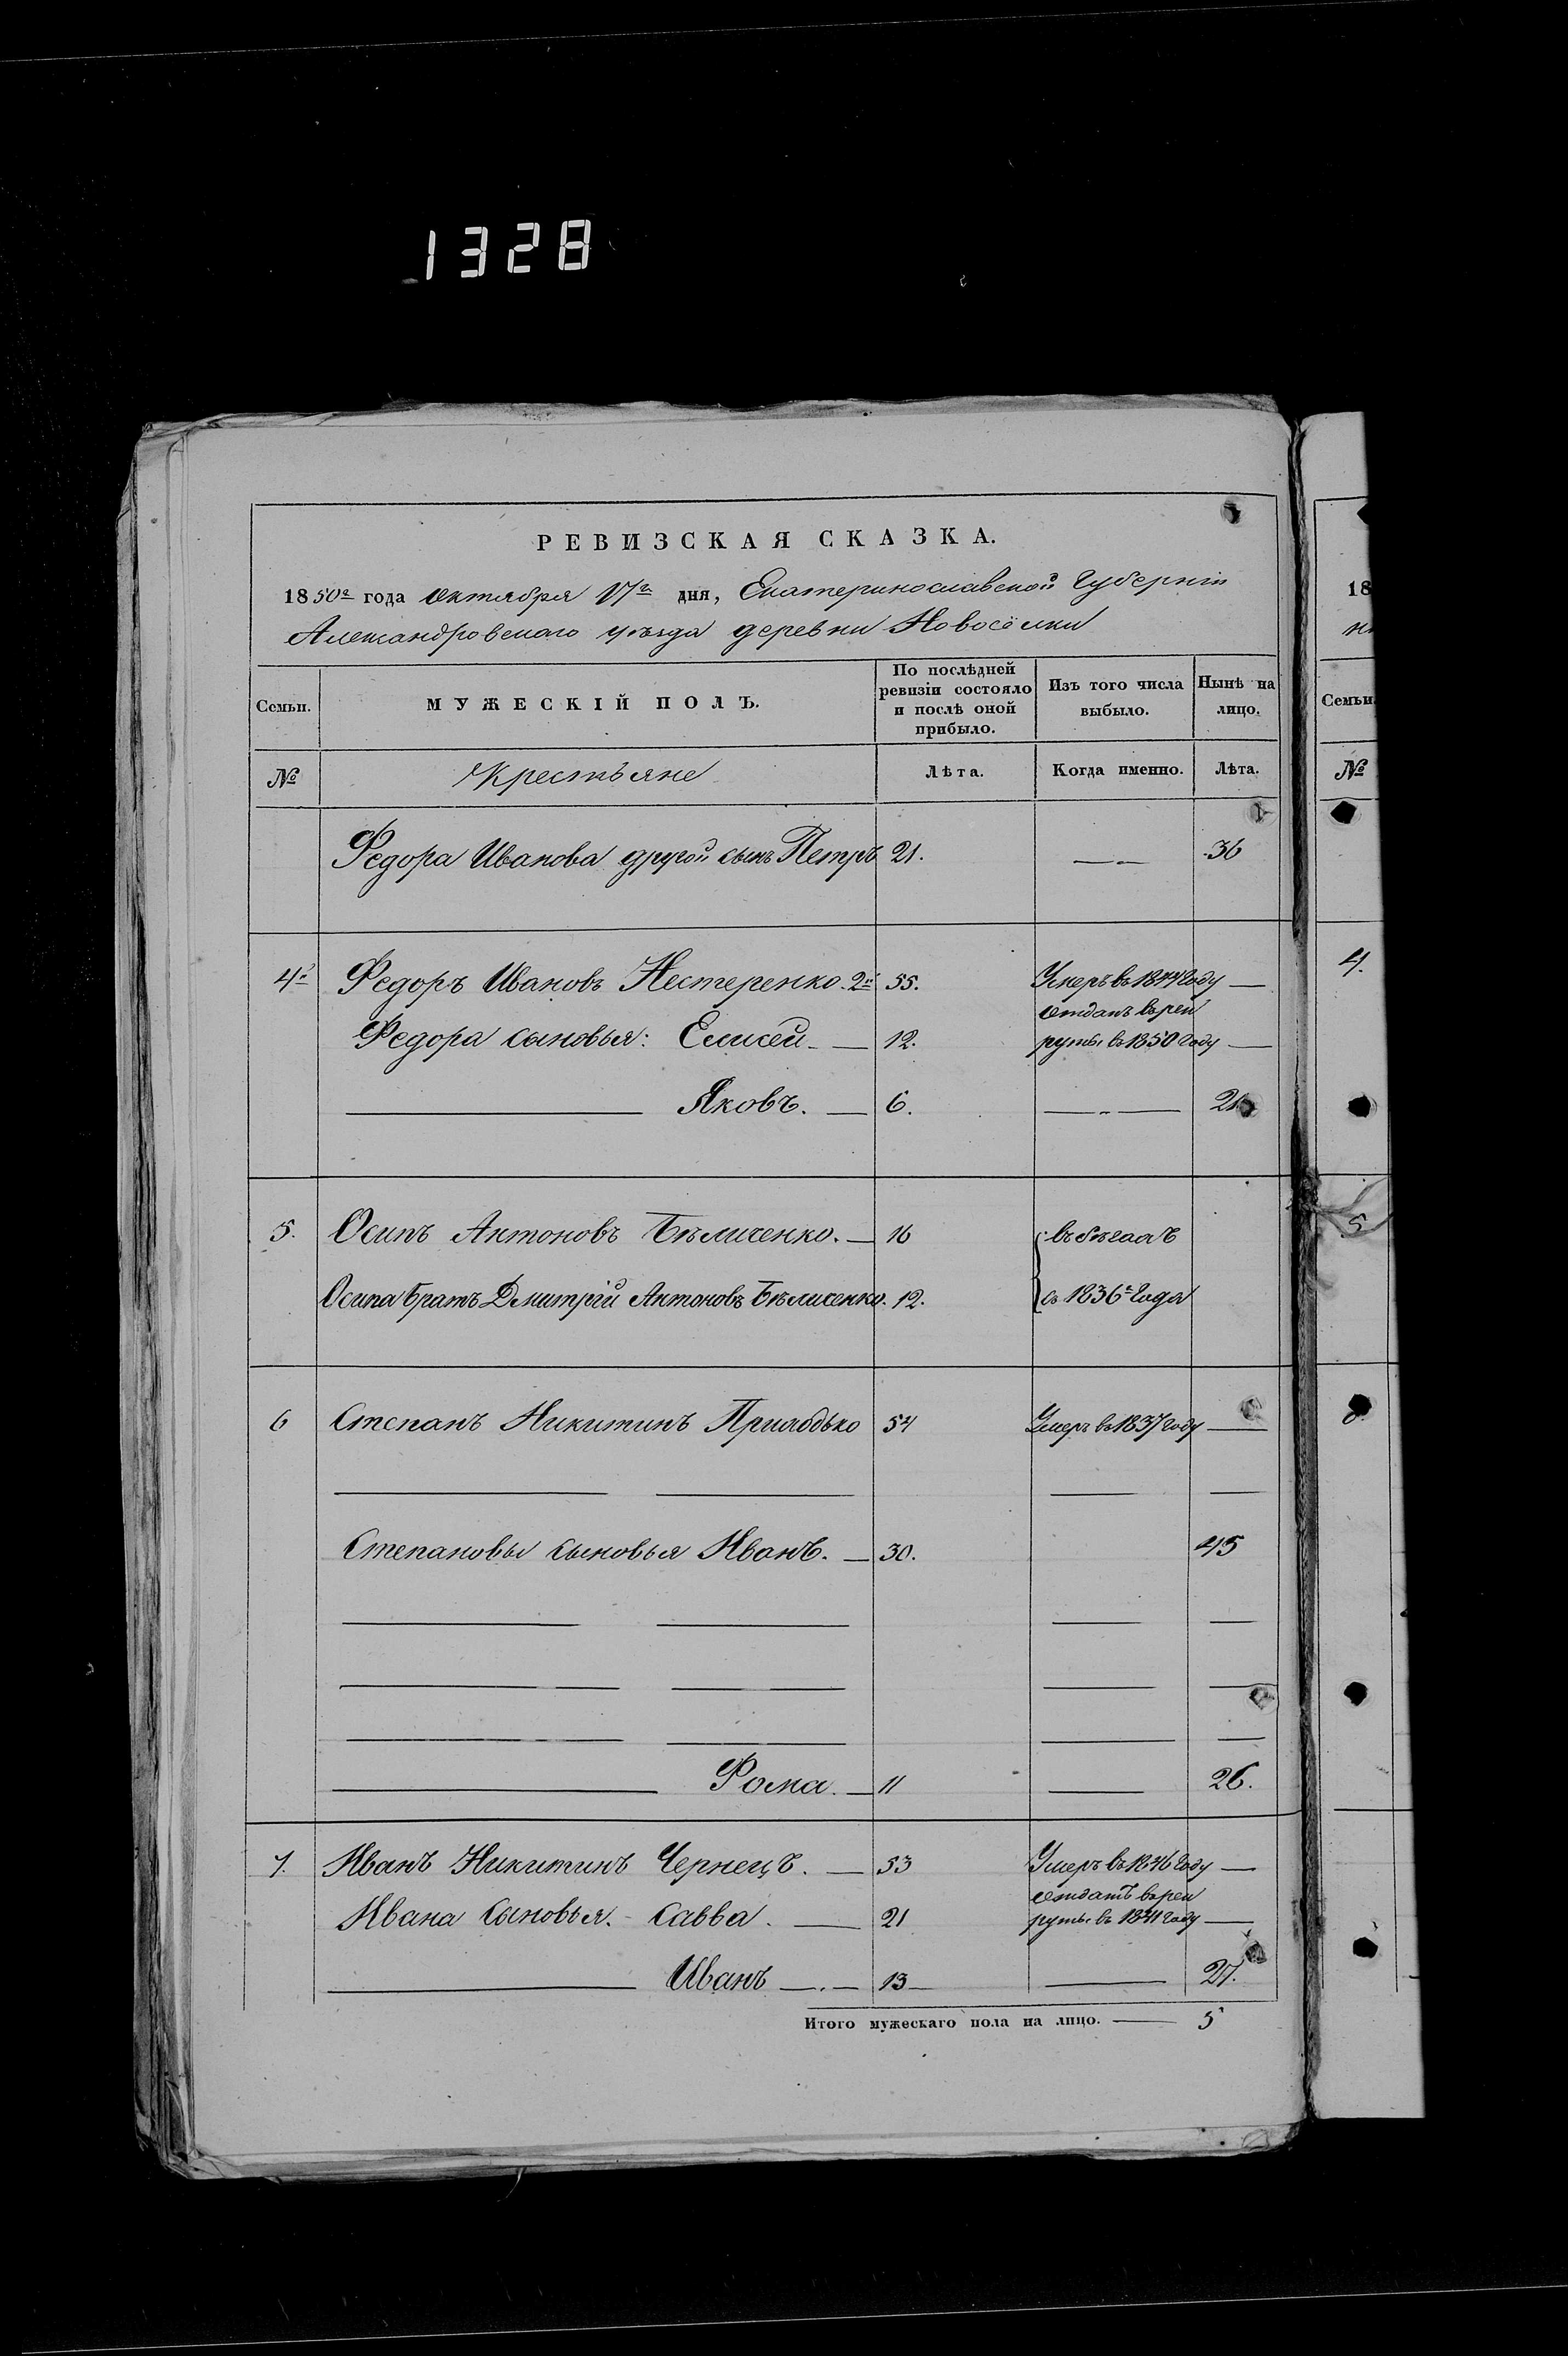 1328
РЕВИЗСКАЯ СКАЗКА.
1850г года Октября 17го дня, Екатеринославской Губернiи
Александровскаго уѣзда деревни Новосёлки
Семьи. МУЖЕСКІЙ ПОЛЪ. По послѣдней ревизіи состояло и послѣ оной прибыло. Изъ того числа выбыло. Нынѣ на лицо.
№ Крестьяне Лѣта. Когда именно. Лѣта.
Федора Иванова другой сынъ Петръ 21. — — 36
4й Федоръ Ивановъ Нестеренко 2й 55. Умеръ въ 1844 Году —
Федора сыновья: Елисей — 12. отданъ въ рекруты въ 1850 Году —
— Яковъ. — 6. — — 21
5. Осипъ Антоновъ Бѣличенко. — 16 въ бѣгахъ
Осипа братъ Дмитрій Антоновъ Бѣличенко. 12. съ 1836г Года
6 Степанъ Никитинъ 54 Умеръ въ 1837 году —
— — — —
Степановы сыновья Иванъ. — 30. 45
— — — —
— — — —
— — — —
— Фома. — 11 — 26.
7. Иванъ Никитинъ Чернецъ. — 53 Умеръ въ 1846 Году —
Ивана Сыновья. - Савва. — 21 отдатъ въ рекруты въ 1841 Году —
— Иванъ — . — 13 — — 27.
Итого мужескаго пола на лицо. — 5
18
Семьи
№
4.
5
6